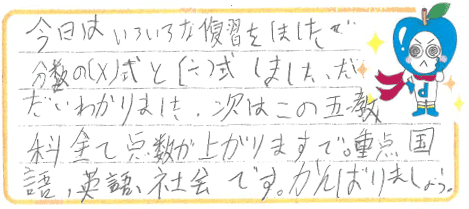 今日はいろいろな復習をしました。
分数の(×)式と(÷)式しました、だ
だいわかりました。次はこの五教
科全て点数が上がりますで。重点国
語、英語、社会です。がんばりましょう。
d